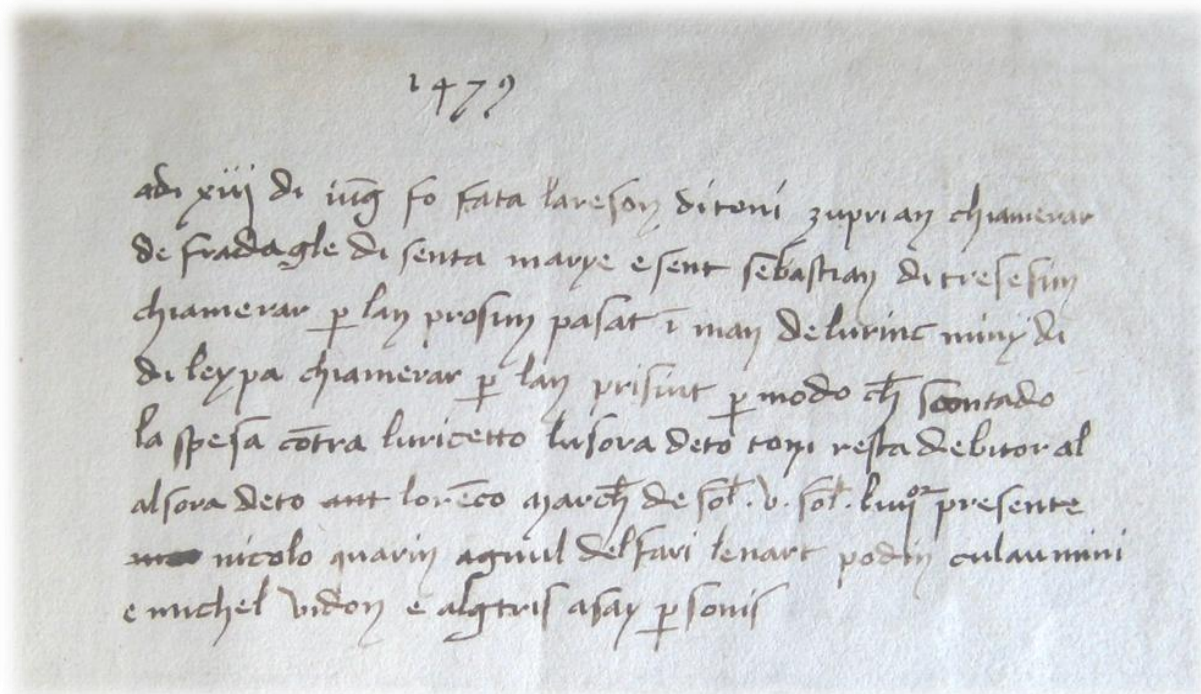 1479
adi xiij di iug̃ fo fata lareson di toni zuprian chiamerar
de fradagle di senta marye e sent sebastian di tresesin
chiamerar p lan prosim pasat ĩ man de lurinc miny di
di leypa chiamerar p lan prisint p modo ch scontado
la spesa cõtra luricetto lusora deto toni resta debitor al
alsora deto lorẽco march de sol. v. sol. presente
nicolo quarin agnul del fari lenart podin culau mini
e michel vidon e algtris asay p sonis